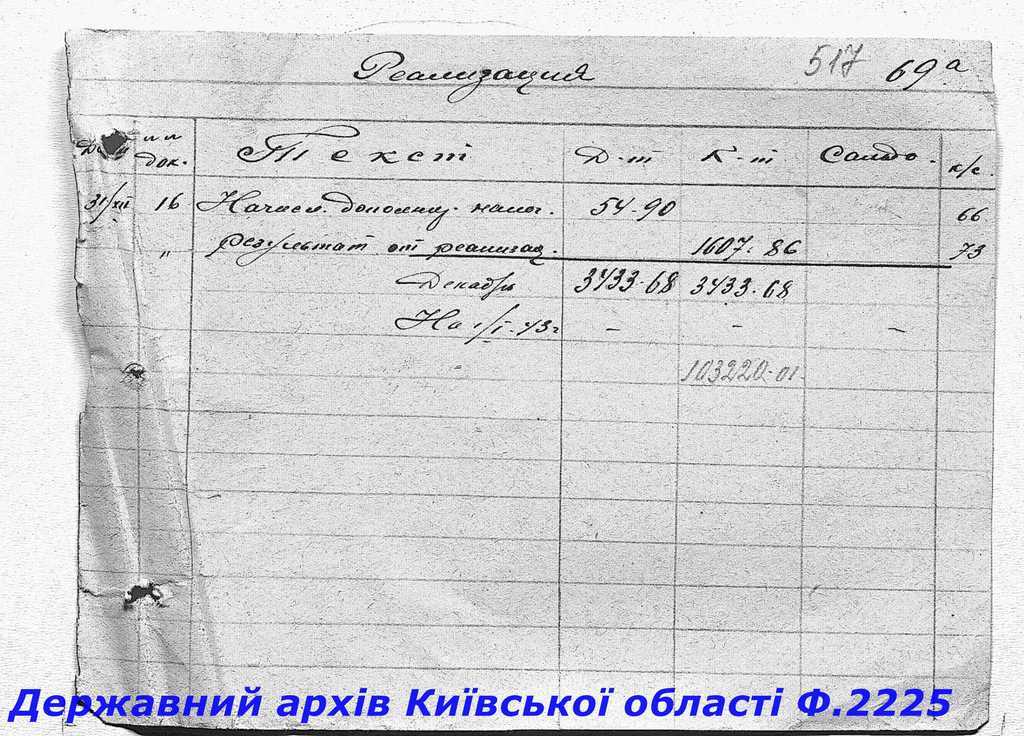 Реализация 517 69а
Дата №№ док. Текст Д-т К-т Сальдо. к/с.
31/XII 16 Начисл. дополнит. налог. 54-90 66
" Результат от реализац. 1607-86 73
Декабрь 3433-68 3433-68
На 1/I-43г - - -
103220-01
Державний архів Київської області Ф.2225